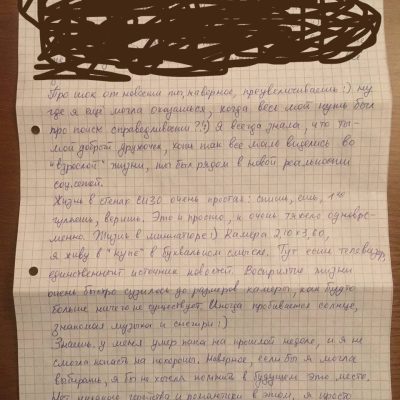 Про шок от новости ты, наверное, преувеличиваешь :) ну
где я ещё могла оказаться, когда весь мой путь был
про поиск справедливости?!) Я всегда знала, что ты-
мой добрый дружочек, хоть так все мало виделись во
"взрослой" жизни, ты был рядом в новой реальности
соц.сетей.
Жизнь в стенах СИЗО очень простая: спишь, ешь, 1 час
гуляешь, веришь. Это и просто, и очень тяжело одновре-
менно. Жизнь в миниатюре :) Камера 2,10 x 3,60,
я живу в "купе" в буквальном смысле. Тут есть телевизор,
единственный источник новостей. Восприятие жизни
очень быстро сузилось до размеров камеры, как будто
больше ничего не существует. Иногда пробивается солнце,
знакомая музыка и снегири :)
Знаешь, у меня умер папа на прошлой неделе, и я не
смогла попасть на похороны. Наверное, если бы я могла
выбирать, я бы не хотела помнить в будущем это место.
Нет никакого геройства и романтики в этом, я просто